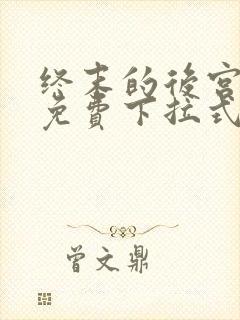 终末的後宮
免費下拉式
曾文鼎